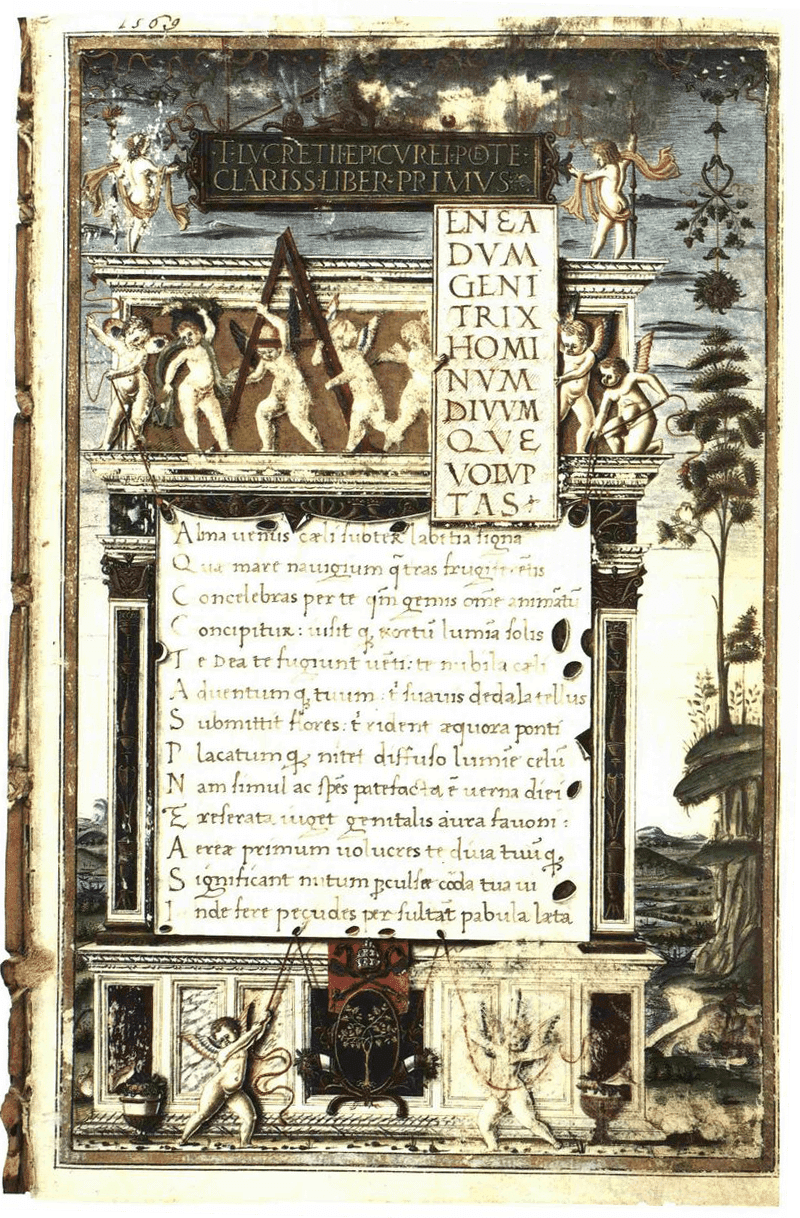 1569
T·LVCRETII·EPICVREI·POETE·
CLARISS·LIBER·PRIMVS·
A
ENEA
DVM
GENI
TRIX
HOMI
NVM
DIVVM
QVE
VOLVP
TAS
Alma venus cæli subter labentia signa
Quæ mare navigium q̄ terras frugiferentis
Concelebras per te qm̄ genus om̄e animātū
Concipitur: uisit q; exortū lumina solis
Te Dea te fugiunt uēti: te nubila cæli
Aduentum q; tuum: t' suauis dedala tellus
Submittit flores: t' rident æquora ponti
Placatum q; nitet diffuso lumīe celū
Nam simul ac spēs patefacta ē uerna diei
Exreserata uiget genitalis aura fauoni:
Aereæ primum uolucres te diua tuūq;
Significant initum perculsæ corda tua ui
Inde fere pecudes per sultāt pabula læta